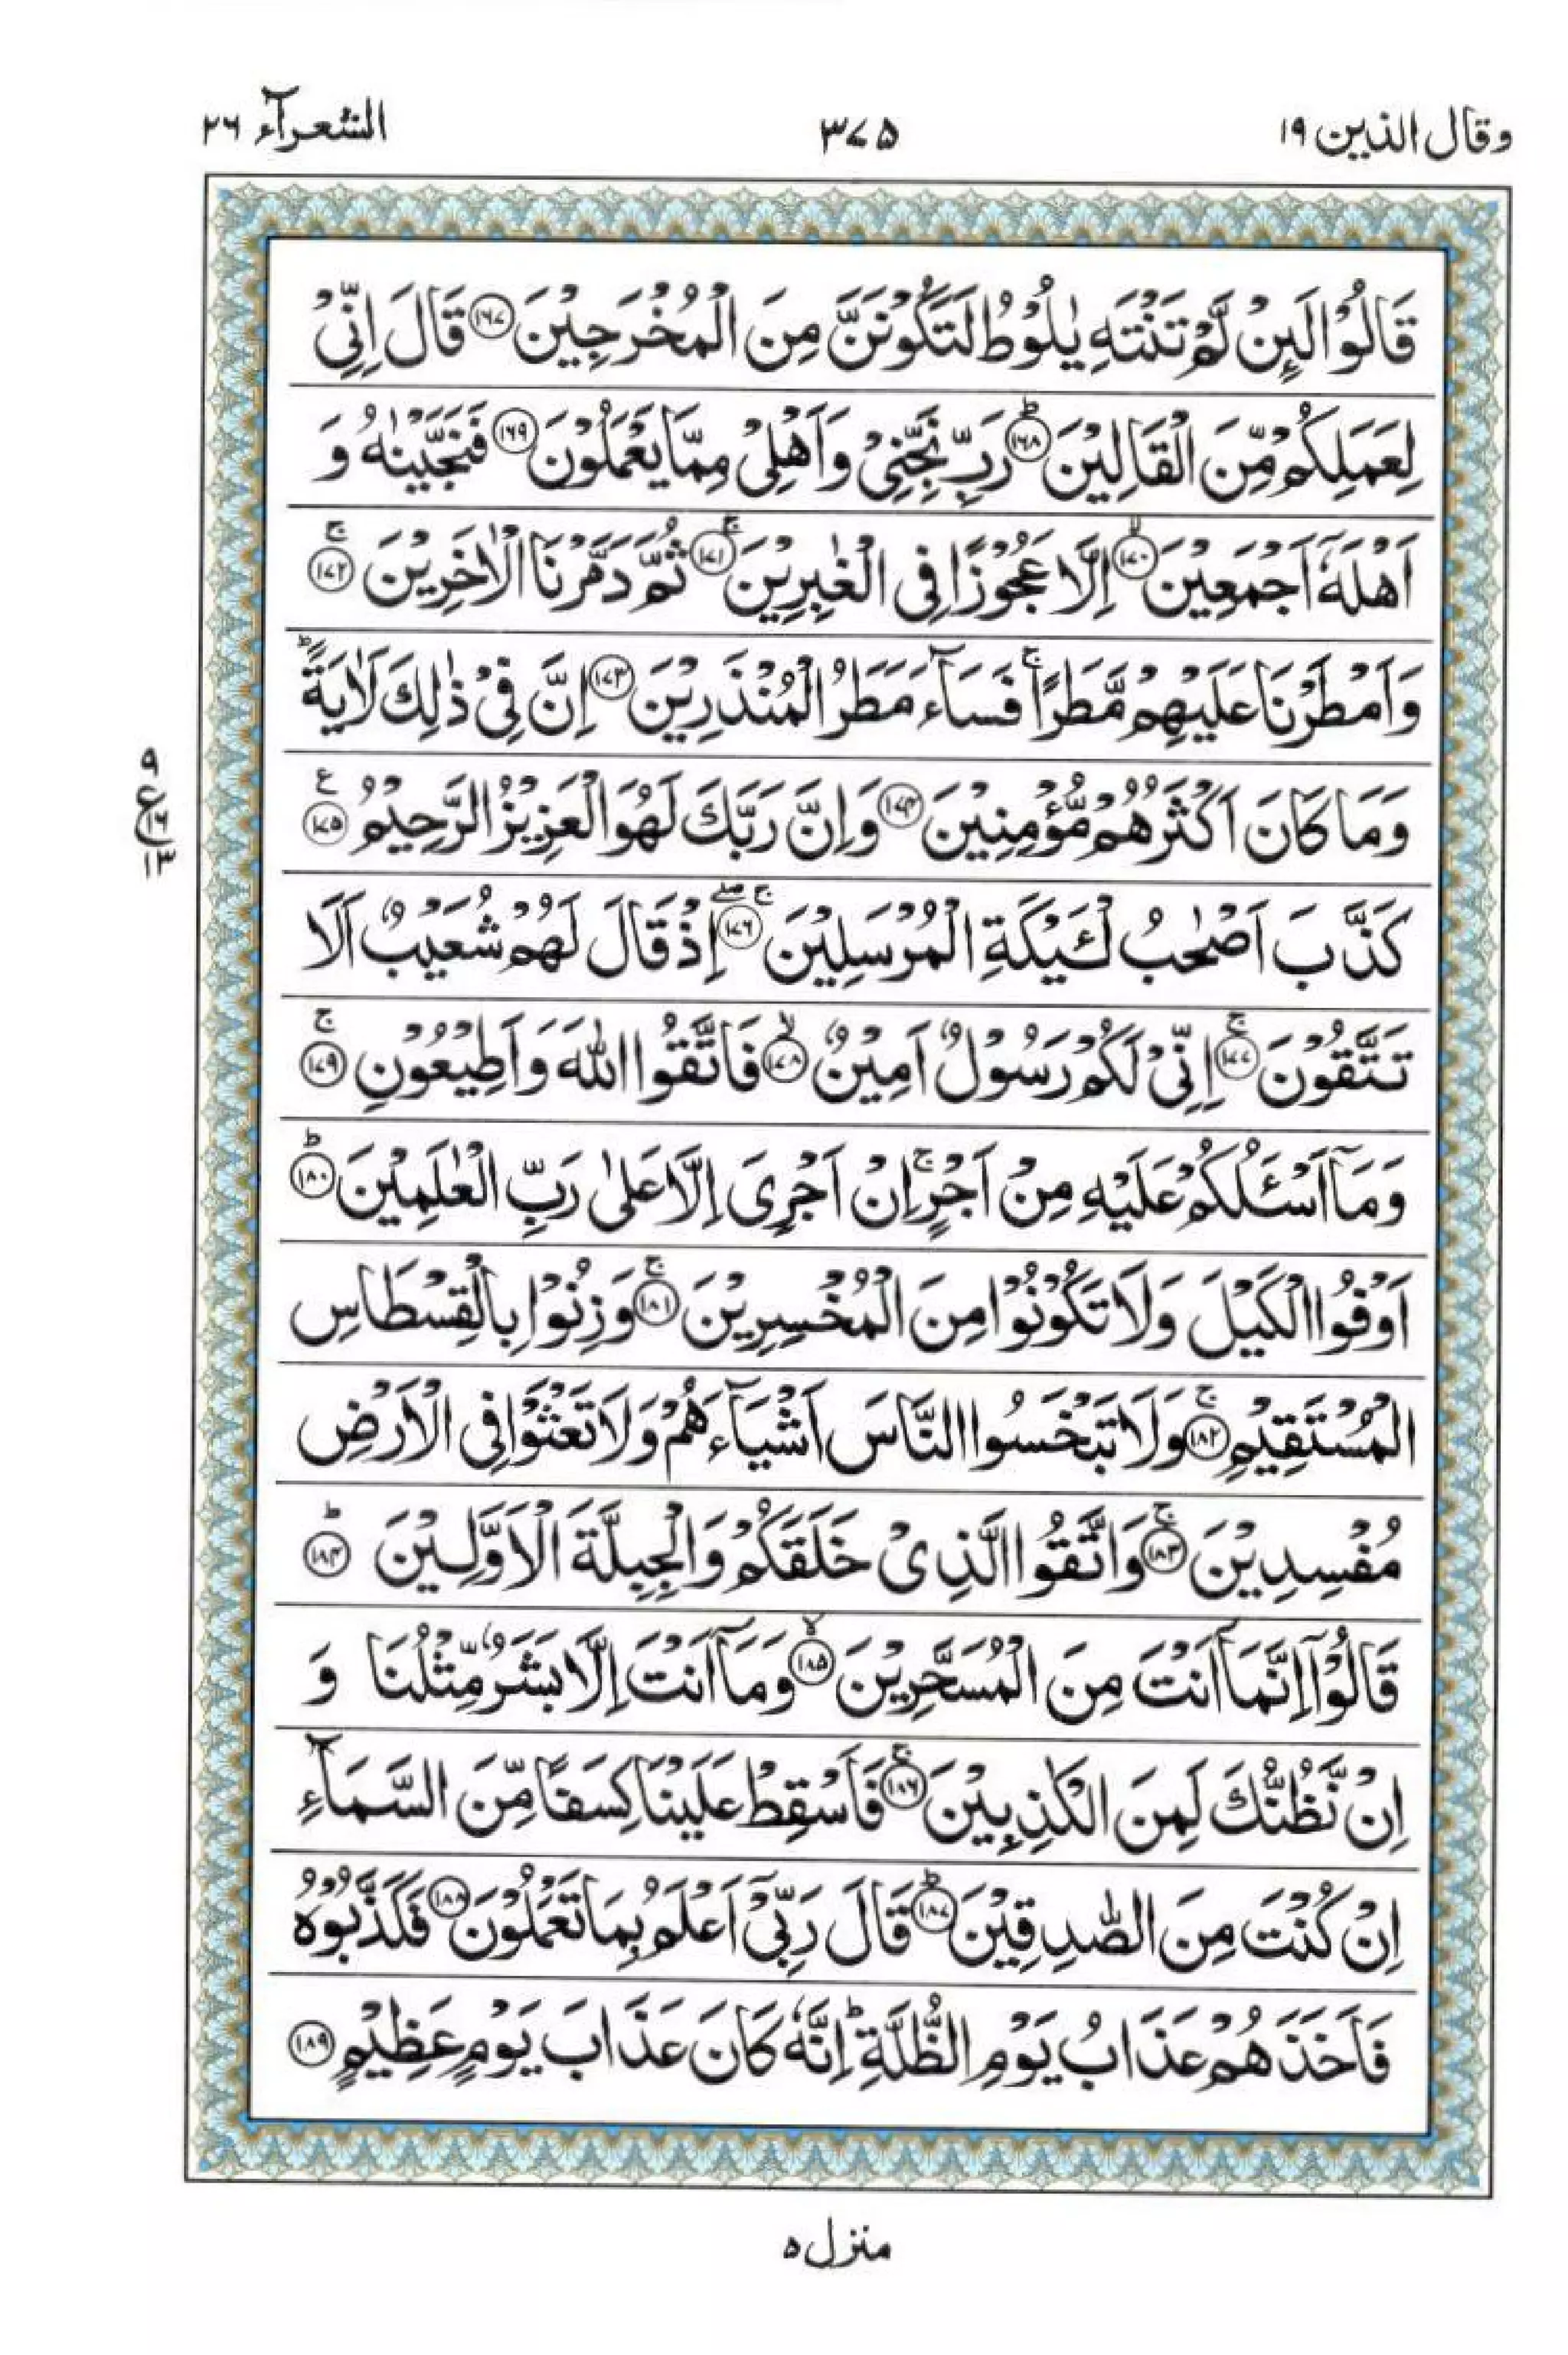 وقال الذين ۱۹
۳۷۵
الشعرآء ۲۶
قَالُوْا لَىِٕنْ لَّمْ تَنْتَهِ يٰلُوْطُ لَتَكُوْنَنَّ مِنَ الْمُخْرَجِيْنَ ۝۱۶۷ قَالَ اِنِّيْ
لِعَمَلِكُمْ مِّنَ الْقَالِيْنَ ؕ۝۱۶۸ رَبِّ نَجِّنِيْ وَاَهْلِيْ مِمَّا يَعْمَلُوْنَ ۝۱۶۹ فَنَجَّيْنٰهُ وَ
اَهْلَهٗۤ اَجْمَعِيْنَ ۙ۝۱۷۰ اِلَّا عَجُوْزًا فِى الْغٰبِرِيْنَ ۚ۝۱۷۱ ثُمَّ دَمَّرْنَا الْاٰخَرِيْنَ ۚ۝۱۷۲
وَاَمْطَرْنَا عَلَيْهِمْ مَّطَرًا ۚ فَسَآءَ مَطَرُ الْمُنْذَرِيْنَ ۝۱۷۳ اِنَّ فِيْ ذٰلِكَ لَاٰيَةً ؕ
وَمَا كَانَ اَكْثَرُهُمْ مُّؤْمِنِيْنَ ۝۱۷۴ وَاِنَّ رَبَّكَ لَهُوَ الْعَزِيْزُ الرَّحِيْمُ ۝۱۷۵ ع
۹
ع ۱۶
۱۳
كَذَّبَ اَصْحٰبُ لْـَٔيْكَةِ الْمُرْسَلِيْنَ ۚۖ۝۱۷۶ اِذْ قَالَ لَهُمْ شُعَيْبٌ اَلَا
تَتَّقُوْنَ ۚ۝۱۷۷ اِنِّيْ لَكُمْ رَسُوْلٌ اَمِيْنٌ ۙ۝۱۷۸ فَاتَّقُوا اللّٰهَ وَاَطِيْعُوْنِ ۚ۝۱۷۹
وَمَاۤ اَسْـَٔلُكُمْ عَلَيْهِ مِنْ اَجْرٍ ۚ اِنْ اَجْرِيَ اِلَّا عَلٰى رَبِّ الْعٰلَمِيْنَ ؕ۝۱۸۰
اَوْفُوا الْكَيْلَ وَلَا تَكُوْنُوْا مِنَ الْمُخْسِرِيْنَ ۚ۝۱۸۱ وَزِنُوْا بِالْقِسْطَاسِ
الْمُسْتَقِيْمِ ۚ۝۱۸۲ وَلَا تَبْخَسُوا النَّاسَ اَشْيَآءَهُمْ وَلَا تَعْثَوْا فِى الْاَرْضِ
مُفْسِدِيْنَ ۚ۝۱۸۳ وَاتَّقُوا الَّذِيْ خَلَقَكُمْ وَالْجِبِلَّةَ الْاَوَّلِيْنَ ؕ۝۱۸۴
قَالُوْۤا اِنَّمَاۤ اَنْتَ مِنَ الْمُسَحَّرِيْنَ ۙ۝۱۸۵ وَمَاۤ اَنْتَ اِلَّا بَشَرٌ مِّثْلُنَا وَ
اِنْ نَّظُنُّكَ لَمِنَ الْكٰذِبِيْنَ ۚ۝۱۸۶ فَاَسْقِطْ عَلَيْنَا كِسَفًا مِّنَ السَّمَآءِ
اِنْ كُنْتَ مِنَ الصّٰدِقِيْنَ ؕ۝۱۸۷ قَالَ رَبِّيْۤ اَعْلَمُ بِمَا تَعْمَلُوْنَ ۝۱۸۸ فَكَذَّبُوْهُ
فَاَخَذَهُمْ عَذَابُ يَوْمِ الظُّلَّةِ ؕ اِنَّهٗ كَانَ عَذَابَ يَوْمٍ عَظِيْمٍ ۝۱۸۹
منزل ۵